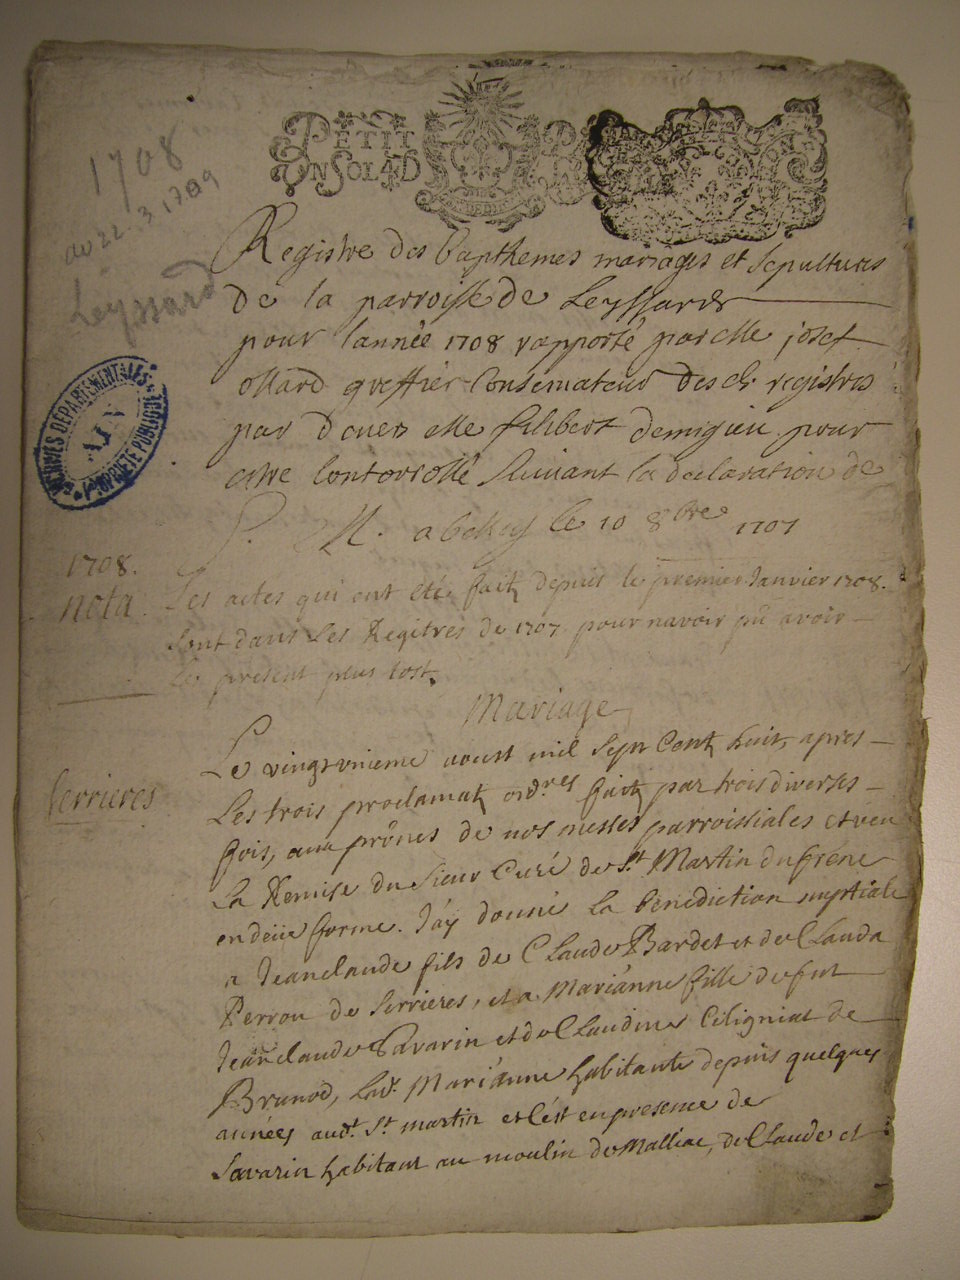 PETIT
EN SOL 4 D
1708
au 22.3.1709
Leyssard
Registre des bapthemes mariages et sepultures
de la parroisse de Leyssards
pour l'année 1708 rapporté par Me josef
greffier Conservateur des registres
par devers Me filibert demigieu pour
estre Controrollé suivant la declaration de
S. M. a belley le 10 8bre 1707
ARCHIVES DÉPARTEMENTALES
AIN
PROPRIÉTÉ PUBLIQUE
1708.
nota.
Les actes qui ont été faitz depuis le premier Janvier 1708.
sont dans les Regitres de 1707 pour navoir pû avoir
Le present plus tost.
Mariage
Serrieres
Le vingt unieme aoust mil sept Centz huit, apres
Les trois proclamatz ordres faitz par trois diverses
fois, aux prônes de nos messes parroissiales et veu
La Remise du Sieur Curé de St. Martin du frêne
en deüe forme. J'ay donné La bénédiction nuptiale
a Jeanclaude fils de Claude Bardet et de Clauda
Perrou de Serrieres, et a Mariánne fille de fut
Jeanclaude Savarin et de Claudine Ciligniat de
Brunod, Lad. Mariánne habitante depuis quelques
années aud. St. martin et C'est en presence de
Savarin habitant au moulin de Malliac, de Claude et